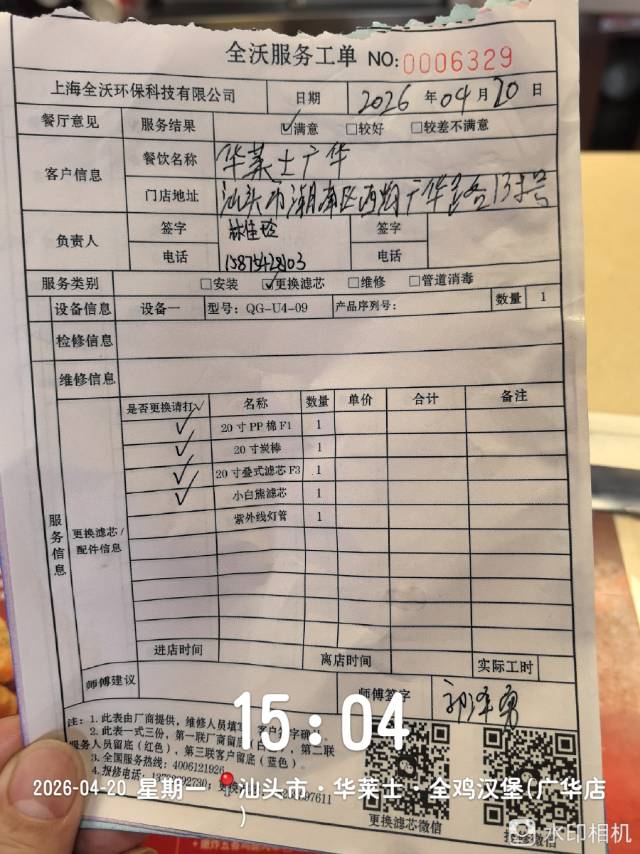 全沃服务工单 NO:0006329
上海全沃环保科技有限公司 日期 2026年04月20日
餐厅意见 服务结果 ☑满意 □较好 □较差不满意
客户信息 餐饮名称 华莱士广华
门店地址 汕头市潮南区两英广华路13号
负责人 签字 签字
电话 电话
服务类别 □安装 ☑更换滤芯 □维修 □管道消毒
设备信息 设备一 型号: QG-U4-09 产品序列号: 数量 1
检修信息
维修信息
服务信息
更换滤芯/配件信息
是否更换请打√ 名称 数量 单价 合计 备注
✓ 20寸PP棉F1 1
✓ 20寸炭棒 1
✓ 20寸叠式滤芯F3 1
✓ 小白熊滤芯 1
紫外线灯管 1
进店时间 离店时间 实际工时
师傅建议 师傅签字
注: 1.此表由厂商提供, 维修人员填
2.此表一式三份, 第一联厂商留底
第二联
服务人员留底(红色), 第三联客户留底(蓝色)。
3.全国服务热线: 4006121926
4.报修电话:
更换滤芯微信
15:04
2026-04-20 星期一 汕头市·华莱士·全鸡汉堡(广华店)
水印相机